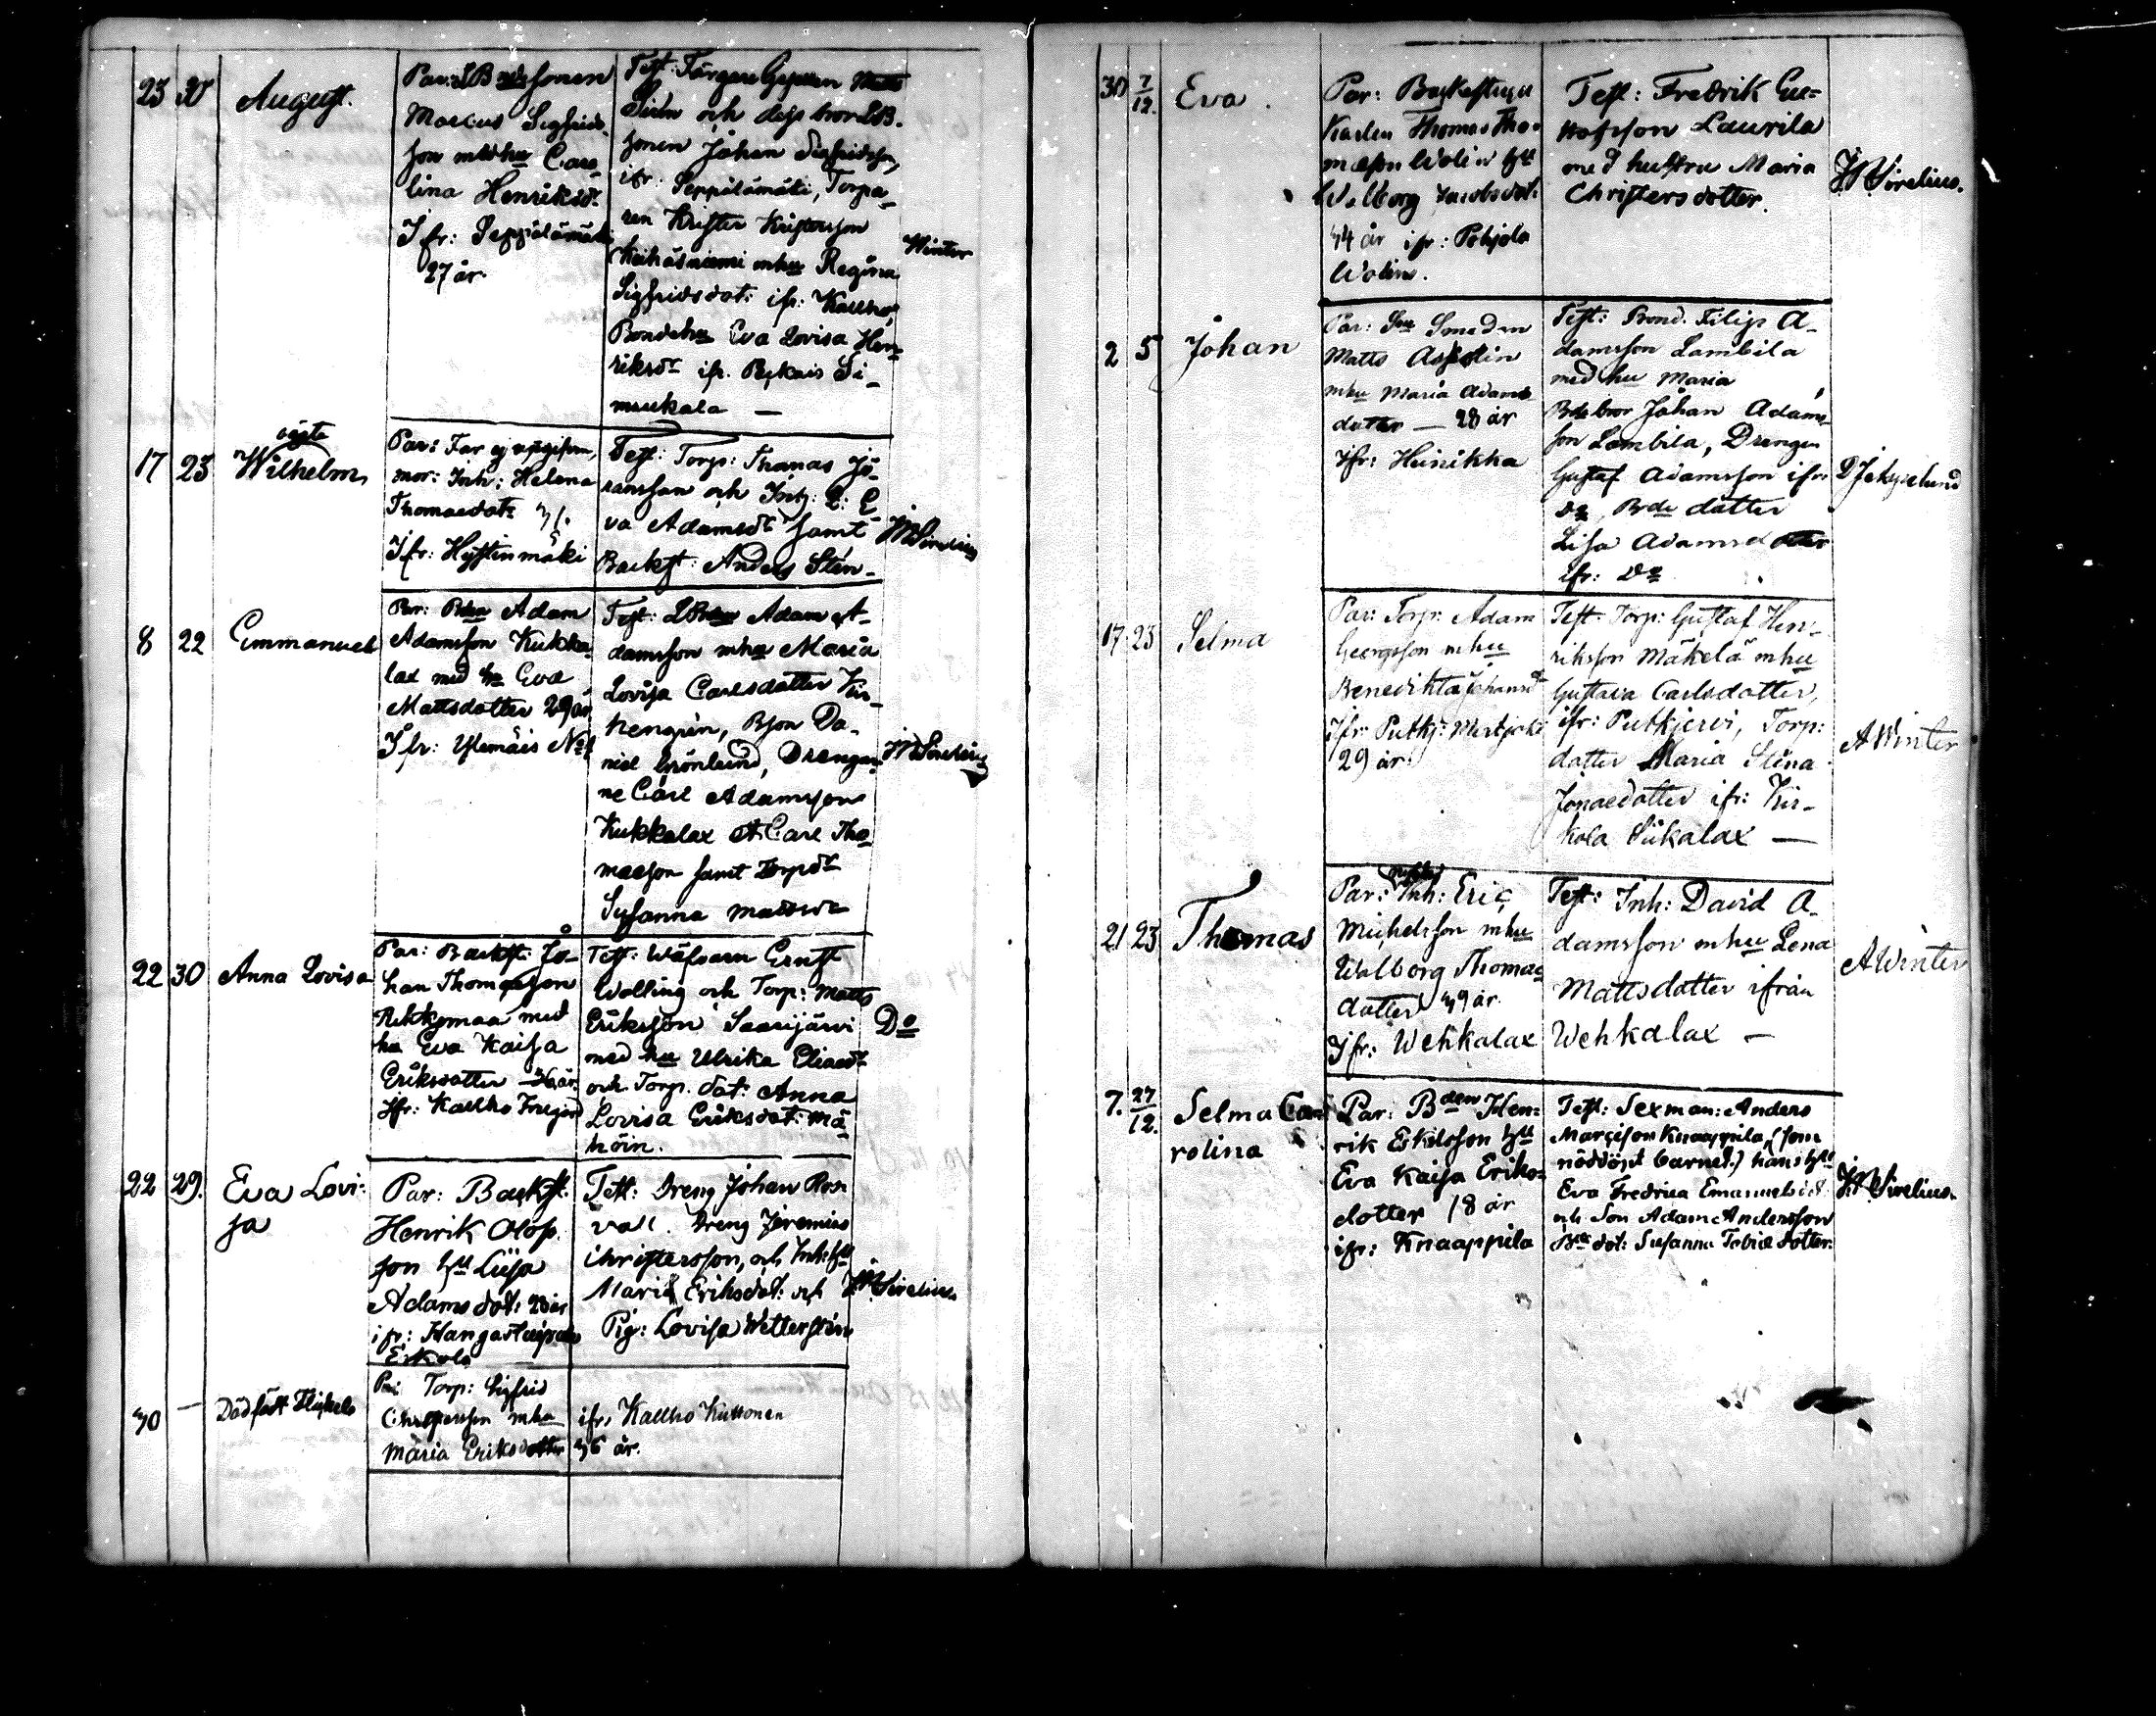 23 30 August.
Par: LBondesonen
Marcus Sigfrids-
son med hu Caro-
lina Henriksdr
Ifr: Seppälämäki
27 år.
Test: Färgare Gesellen Matts
Sirén och dess bror LB.
sonen Johan Sigfridsson,
ifr: Seppälämäki, Torpa-
ren Krister Kristersson
mhu Regina
Sigfridsdot: ifr: Kallho,
Bondehu Eva Lovisa Hen-
riksdr ifr.
Winter
17 23 oägta
Wilhelm
Par: Far ej uppgifven,
mor: Inh: Helena
Thomasdotr
Ifr: Hystinmäki
Test: Torp: Thomas Jö-
ransson och
va Adamsdr samt
Backst: Anders Sten-
JWSirelius
8 22 Emmanuel
Par: Bden Adam
Adamsson Kukka-
lax med hu Eva
Mattsdotter 29 år
Ifr: Ylemäis No 1
Test: LBden Adam A-
damsson mhu Maria
Lovisa Carlsdotter
Bson Da-
niel Grönlund, Drengar-
ne Carl Adamsson
Kukkalax & Carl Tho-
masson samt Torpdr
Susanna
JWSirelius
22 30 Anna Lovisa
Par: Backst: Jo-
han Thomasson
med
hu Eva Kaisa
Eriksdotter 36 år
Ifr: Kallho
Test: Wäfvaren Ernst
Wolling och Torp: Matts
Eriksson Saarijärvi
med hu Ulrika Eliasdr
och Torp. dot: Anna
Lovisa Eriksdot: Mä-
höin.
Do
22 29. Eva Lovi-
sa
Par: Backst:
Henrik Olofs-
son hu Liisa
Adams dot: 28 år
ifr:
Erkola
Test: Dreng Johan Ros-
vall. Dreng Jeremias
Christersson, och Inh: hu
Maria Eriksdot: och
Pig: Lovisa Wetterstén
JWSirelius.
30 — Dödfödt Flickeb
Par: Torp: Sigfrid
Christersson mhu
Maria Eriksdotter
ifr. Kallho Kuttonen
36 år.
30 7/12. Eva.
Par: Backestugu
Karlen Thomas Tho-
masson Wolin hu
Walborg Jacobsdot:
34 år ifr: Pohjola
Wolin.
Test: Fredrik Gus-
tafsson Laurila
med hustru Maria
Christersdotter.
JWSirelius.
2 5 Johan
Par: Smeden
Matts Asplin
mhu Maria Adams
dotter — 28 år
Ifr: Heinikka
Test: Bond. Filip A-
damsson Lambila
med hu Maria
Bdebror Johan Adams-
son Lambila, Drengen
Gustaf Adamsson ifr
Do, Bde dotter
Lisa Adamsdotter
ifr: Do
17. 23 Selma
Par: Torp: Adam
Georgsson mhu
Benedikta Johansdr
Ifr:
29 år
Test: Torp: Gustaf Hen-
riksson Mäkelä mhu
Gustava Carlsdotter,
ifr: Putkjervi, Torp:
dotter Maria Stina
Jonasdotter ifr: Kir-
kola Siikalax —
AWinter
21 23 Thomas
Par: Inh: Eric
Michelsson mhu
Walborg Thomas
dotter 39 år.
Ifr: Wehkalax
Test: Inh: David A-
damsson mhu Lena
Mattsdotter ifrån
Wehkalax —
AWinter
7. 27/12. Selma Ca-
rolina
Par: Bden Hen-
rik Eskilsson hu
Eva Kaisa Eriks-
dotter 18 år
ifr: Knaappila
Test: Sexman: Anders
Knaappila, (som
nöddöpt barnet.) hans hu
Eva Fredrica Emanuelsdr
och Son Adam Andersson
dot: Susanna Tobiæ dotter.
JWSirelius.